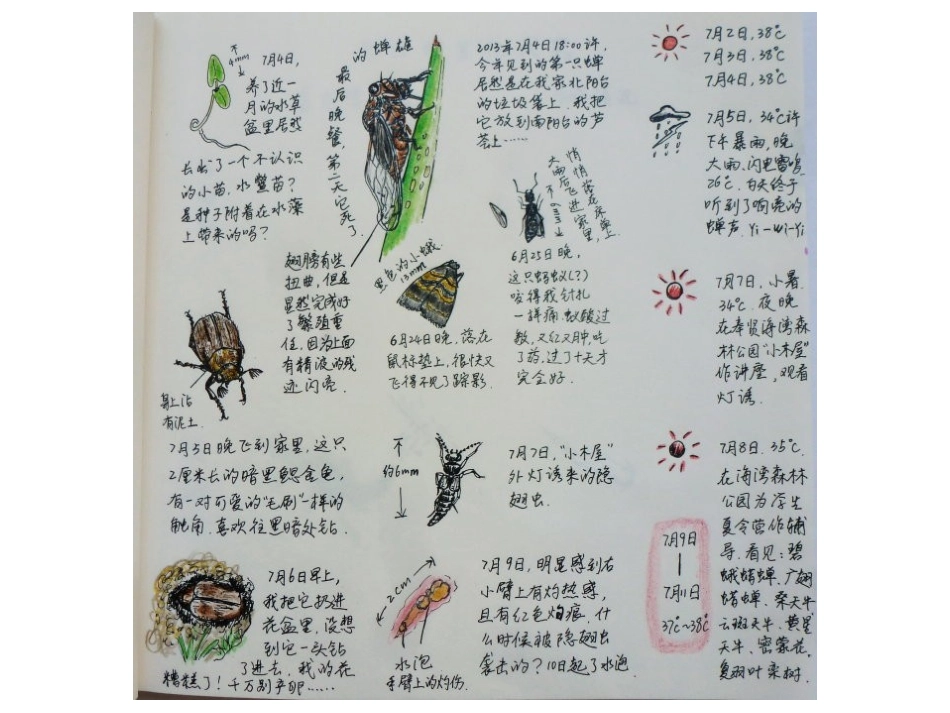 7月4日,
养了近一
月的水草
盆里居然
长出了一个不认识
的小苗,水鳖苗?
是种子附着在水藻
上带来的吗?
4mm
的蝉雄
最后晚餐,第二天它死了.
2013年7月4日18:00许,
今年见到的第一只蝉
居然是在我家北阳台
的垃圾袋上.我把
它放到南阳台的芦
荟上……
翅膀有些
扭曲,但是
显然完成好
了繁殖重
任.因为上面
有精液的残
迹闪亮.
黑色的小蛾.
13mm
6月24日晚,落在
鼠标垫上,很快又
飞得不见了踪影.
大雨后飞进家里,
悄悄落在床单上.
6mm
6月25日晚,
这只蚂蚁(?)
咬得我针扎
一样痛.蚁酸过
敏,又红又肿,吃
了药,过了十天才
完全好.
身上沾
有泥土.
7月5日晚飞到家里,这只
2厘米长的暗黑鳃金龟,
有一对可爱的“毛刷”一样的
触角.喜欢往黑暗处钻.
不
约6mm
7月7日,“小木屋”
外灯诱来的隐
翅虫.
7月6日早上,
我把它扔进
花盆里,没想
到它一头钻
了进去,我的花
糟糕了!千万别产卵……
2cm
水泡
手臂上的灼伤.
7月9日,明显感到右
小臂上有灼热感,
且有红色灼痕.什
么时候被隐翅虫
袭击的?10日起了水泡.
7月2日,38℃
7月3日,38℃
7月4日,38℃
7月5日,34℃许
下午暴雨,晚
大雨.闪电雷鸣,
26℃.白天终于
听到了响亮的
蝉声.Yi-Wi-Yi
7月7日,小暑.
34℃.夜晚
在奉贤海湾森
林公园“小木屋”
作讲座,观看
灯诱.
7月8日.35℃.
在海湾森林
公园为学生
夏令营作辅
导.看见:碧
蛾蜡蝉、广翅
蜡蝉、桑天牛
云斑天牛、黄星
天牛、密蒙花、
复羽叶栾树.
7月9日
|
7月11日
37℃~38℃